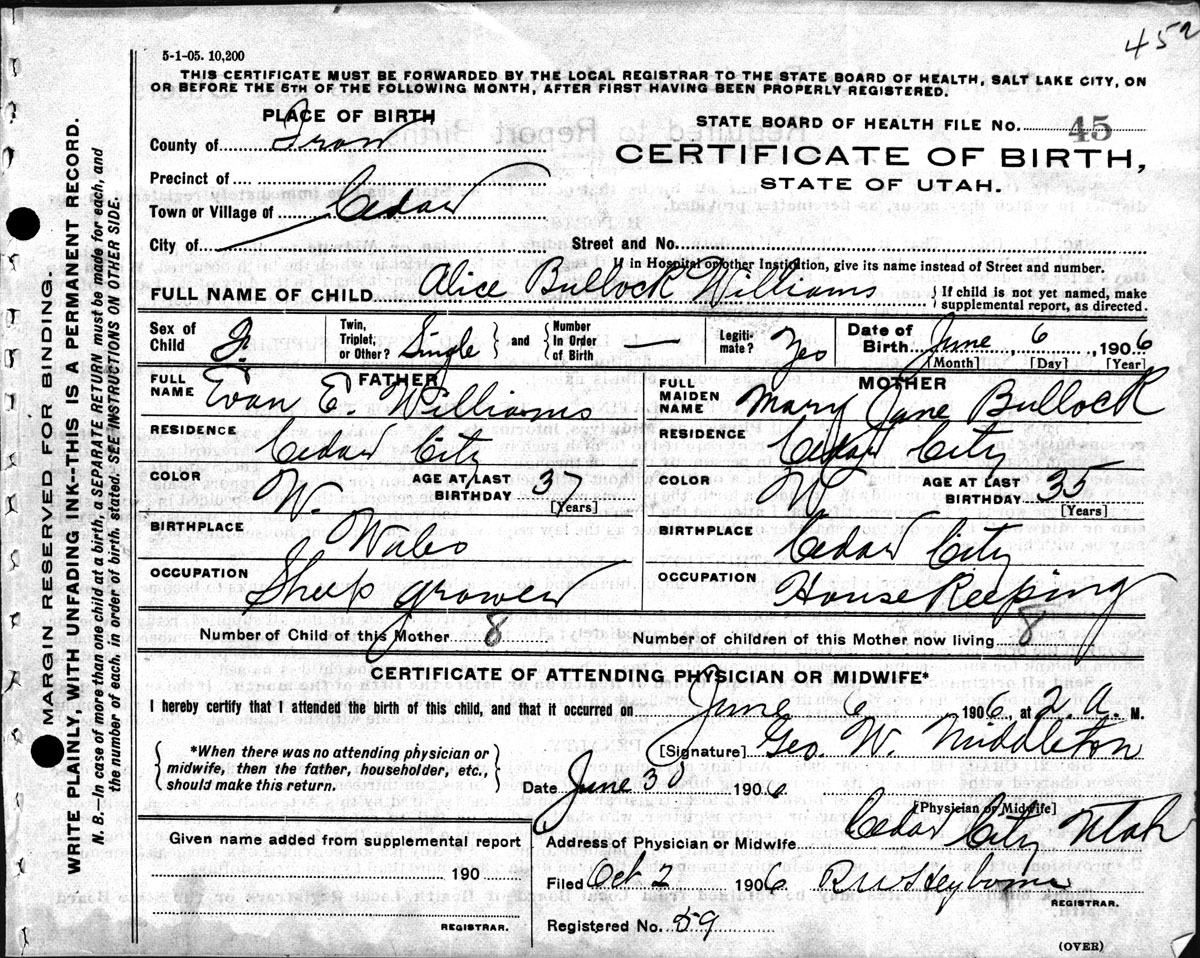 452
5-1-05. 10,200
THIS CERTIFICATE MUST BE FORWARDED BY THE LOCAL REGISTRAR TO THE STATE BOARD OF HEALTH, SALT LAKE CITY, ON
OR BEFORE THE 5TH OF THE FOLLOWING MONTH, AFTER FIRST HAVING BEEN PROPERLY REGISTERED.
PLACE OF BIRTH
County of Iron
Precinct of
Town or Village of Cedar
City of
STATE BOARD OF HEALTH FILE No. 45
CERTIFICATE OF BIRTH,
STATE OF UTAH.
Street and No.
If in Hospital or other Institution, give its name instead of Street and number.
FULL NAME OF CHILD Alice Bullock Williams { If child is not yet named, make
supplemental report, as directed.
Sex of Child F. Twin, Triplet, or Other? Single } and { Number In Order of Birth — Legiti- mate? Yes Date of Birth June, 6, 1906
[Month] [Day] [Year]
FATHER
FULL NAME Evan E. Williams
RESIDENCE
Cedar City
COLOR W. AGE AT LAST BIRTHDAY 37
[Years]
BIRTHPLACE
Wales
OCCUPATION
Sheep grower
MOTHER
FULL MAIDEN NAME Mary Jane Bullock
RESIDENCE
Cedar City
COLOR W AGE AT LAST BIRTHDAY 35
[Years]
BIRTHPLACE
Cedar City
OCCUPATION
House Keeping
Number of Child of this Mother 8 Number of children of this Mother now living 8
CERTIFICATE OF ATTENDING PHYSICIAN OR MIDWIFE*
I hereby certify that I attended the birth of this child, and that it occurred on June 6 1906, at 2. a. M.
{ *When there was no attending physician or
midwife, then the father, householder, etc.,
should make this return. }
[Signature] Geo. W. Middleton
Date June 30 1906
[Physician or Midwife]
Address of Physician or Midwife Cedar City Utah
Given name added from supplemental report
190
REGISTRAR.
Filed Oct 2 1906. R W Heyborne
REGISTRAR.
Registered No. 59
(OVER)
MARGIN RESERVED FOR BINDING.
WRITE PLAINLY, WITH UNFADING INK--THIS IS A PERMANENT RECORD.
N. B.--In case of more than one child at a birth, a SEPARATE RETURN must be made for each, and
the number of each, in order of birth, stated. SEE INSTRUCTIONS ON OTHER SIDE.